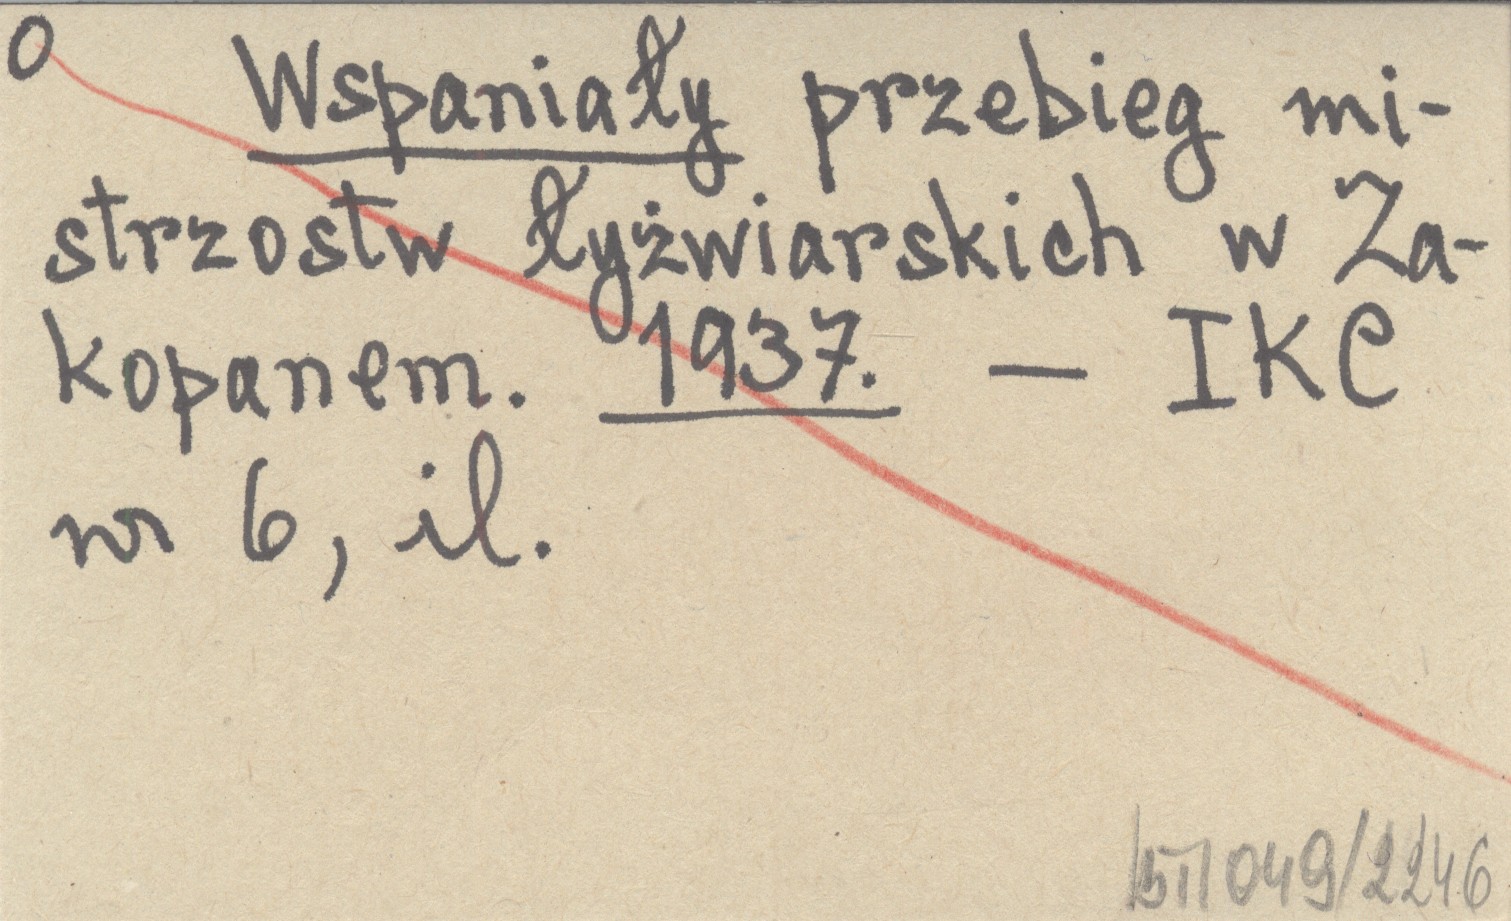 O
Wspaniały przebieg mi-
strzostw łyżwiarskich w Za-
kopanem. 1937. — IKC
nr 6, il.
049/2246